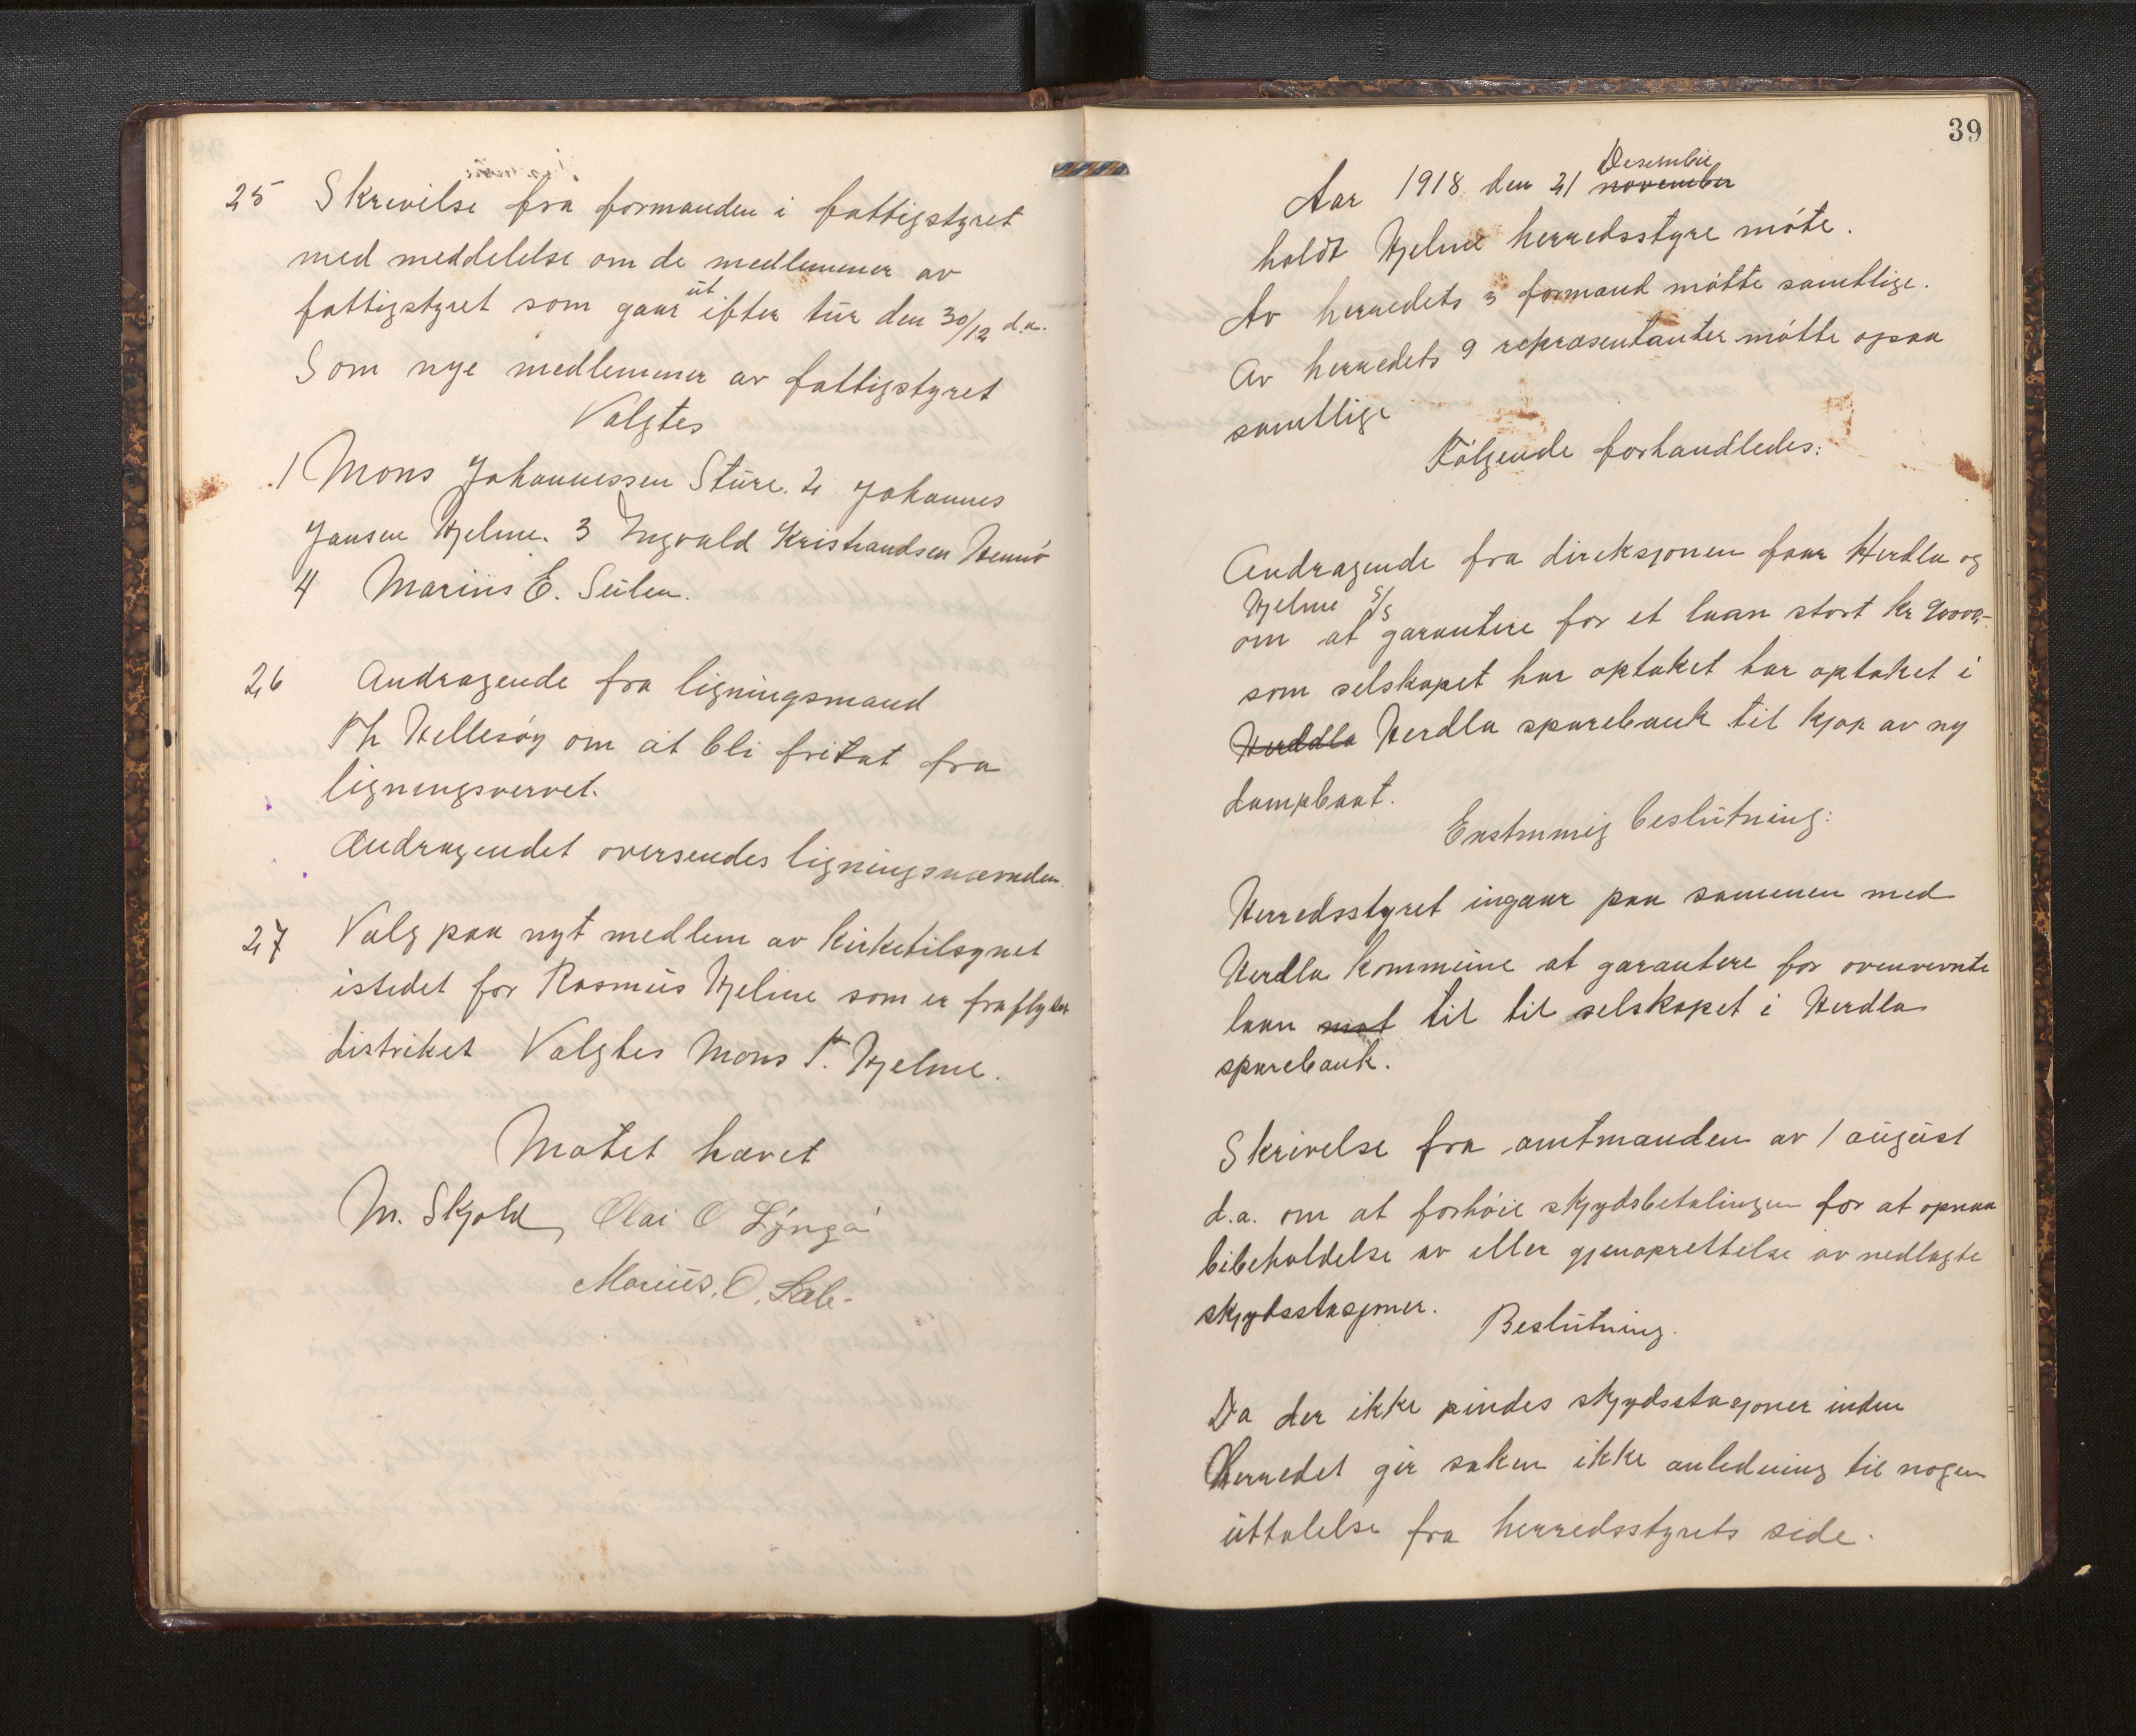 25 Skrevilse fra formanden i fattigstyret
med meddelelse om de medlemmer av
fattigstyret som gaar ut efter tur den 30/12 d.a.
Som nye medlemmer av fattigstyret
Valgtes
1 Mons Johannessen Sture. 2 Johannes
Jansen Hjelme. 3 Ingvald Kristiandsen Hennö
4 Marius E. Seilen.
26 Andragende fra ligningsmand
Th Hellesöy om at bli fritat fra
ligningsvervet.
Andragendet oversendes ligningsnævnden
27 Valg paa nyt medlem av Kirketilsynet
istedet for Rasmus Hjelme som er fraflyttet
distriket Valgtes Mons T. Hjelme.
Motet hævet
M. Skjold, Olai O Lyngö
Marius. O. Sæle.
39
Aar 1918 den 21 november Desember
holdt Hjelme herredsstyre möte.
Av herredets 3 formænd mötte samtlige.
Av herredets 9 repræsentanter mötte ogsaa
samtlige
Fölgende forhandledes:
Andragende fra direksjonen faar Herdla og
Hjelme S/S
om at garantere for et laan stort kr 90000,-
som selskapet har optaket har optaket i
Herddla Herdla sparebank til kjøp av ny
dampbaat.
Enstmmig beslutning:
Herredsstyret ingaar paa sammen med
Herdla Kommune at garantere for ovenvevnte
laan mot til til selskapet i Herdla
sparebank.
Skrivelse fra amtmanden av 1 august
d.a. om at forhöie skydsbetalingen for at opnaa
bibeholdelse av eller gjenoprettelse av nedlagte
skydsstasjoner.
Beslutning.
Da der ikke findes skydsstasjoner inden
Herredet gir saken ikke anledning til nogen
uttalelse fra herredsstyrets side.